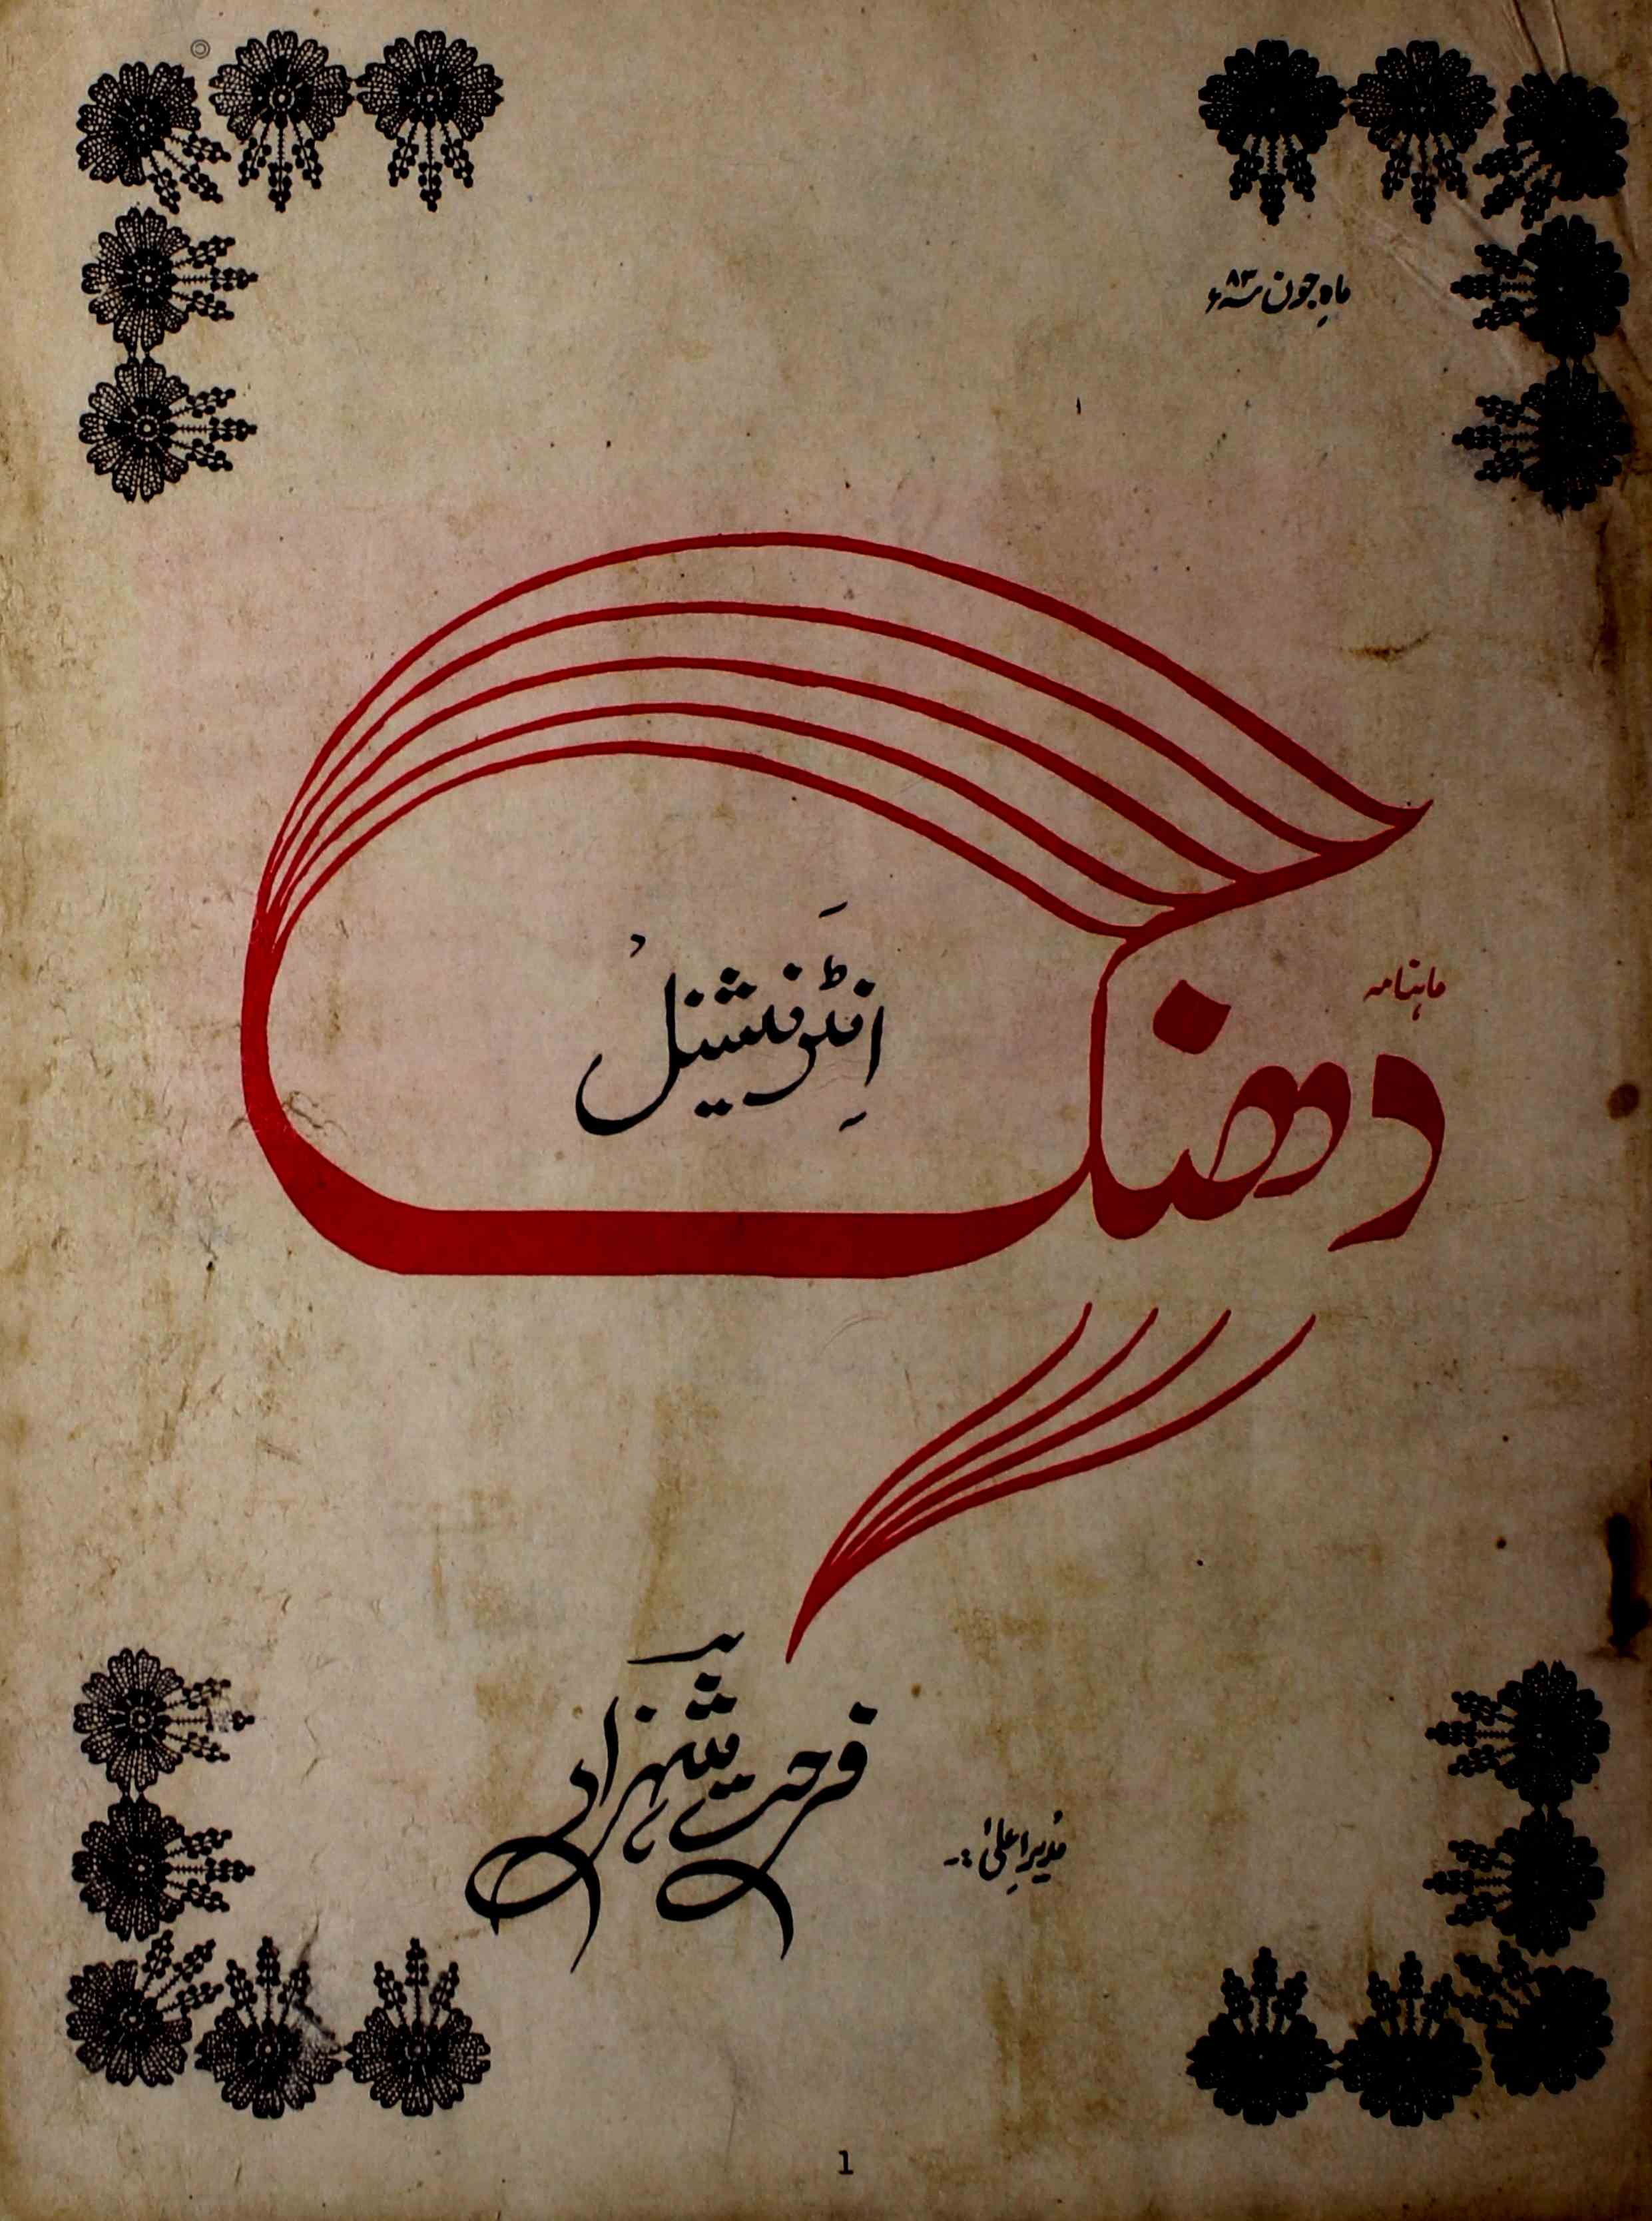 ماہِ جون ۸۳ء
ماہنامہ
دھنک
انٹرنیشنل
مُدیرِ اعلیٰ :۔
فرحت شہزاد
1